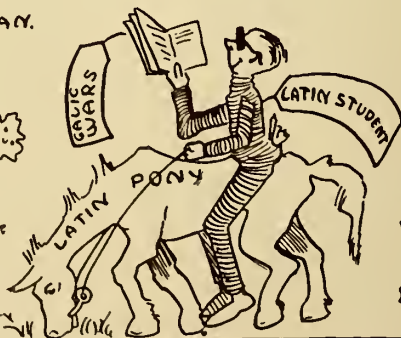 AN.
GALIC
WARS
LATIN STUDENT
LATIN PONY